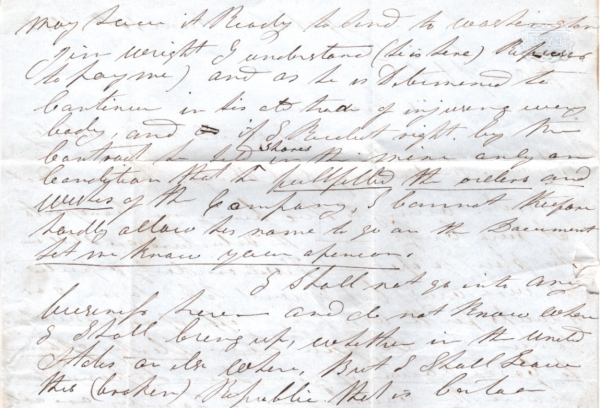 may have it Ready to send to washington
Jim wright I understand (he is here) Refuses
to pay me) and as he is Determined to
Continue in his old trade of injuring every
body, and if I Recolect right by the
Shares
Contract he had in the mine only on
Condition that he fullfilled the orders and
wishes of the Company, I cannot therefore
hardly allow his name to go on the Document
let me know your openion.
I Shall not go into any
business here and do not Know where
I Shall bring up, whether in the United
States or else Where, But I Shall Leave
this (broken) Republic that is Certain